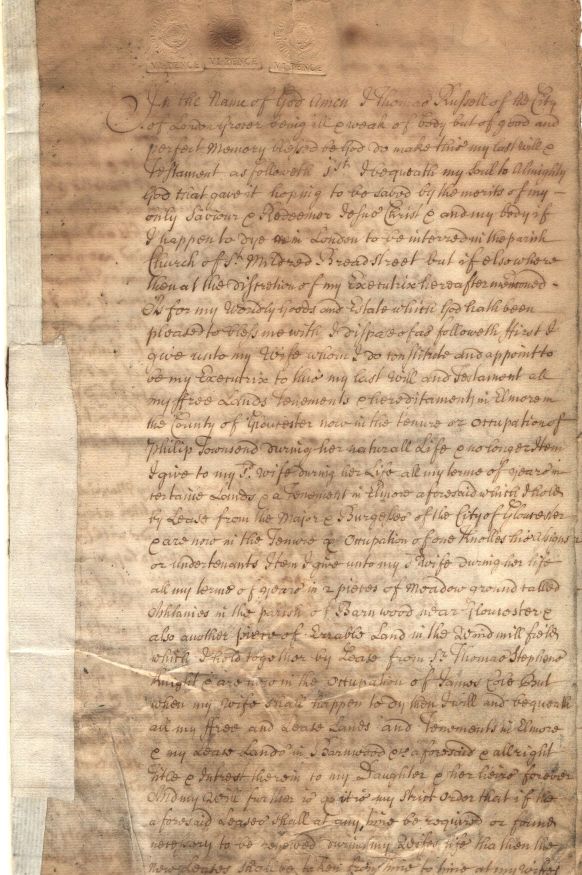 VI PENCE VI PENCE VI PENCE
In the Name of God Amen I Thomas Russell of the City
of London being ill & weak of body but of good and
perfect Memory blessed be God do make this my last will &
Testament as followeth 1st I bequeath my Soul to Almighty
God that gave it hoping to be saved by the merits of my
only Saviour & Redeemer Jesus Christ & and my body if
I happen to dye in London to be interred in the parish
Church of St Mildred Breadstreet but if elsewhere
then at the discretion of my Executrix hereafter menconed
As for my Worldly Goods and Estate which God hath been
pleased to bless me with I dispose of as followeth ffirst I
give unto my Wife whom I do constitute and appoint to
be my Executrix to this my last Will and Testament all
my ffree Lands Tenements & hereditaments in Elmore in
the County of Gloucester now in the tenure or Occupation of
Philip Townsend during her naturall Life & no longer Item
I give to my sd. Wife during her Life all my terme of years in
certaine Lands & a Tenement in Elmore aforesaid which I hold
by Lease from the Major & Burgesses of the City of Gloucester
& are now in the Tenure or Occupation of one Knolles his assigns
or undertenants Item I give unto my sd Wife during her life
all my terme of years in 2 pieces of Meadow ground called
in the parish of Barnwood near Gloucester &
also another piece of Arrable Land in the Wind mill field
which I hold together by Lease from Sr. Thomas Stephens
Knight & are now in the Occupation of James But
when my Wife shall happen to dy then I will and bequeath
all my ffree and Lease Lands and Tenements in Elmore
& my Lease Lands in Barnwood aforesaid & all right
title & Interest therein to my Daughter & her heirs forever
And my Will further is & it is my strict Order that if the
aforesaid Leases shall at any time be required or
necessary to be renewed during my Wifes life that then the
new Leases shall be taken from time to time at my Wifes